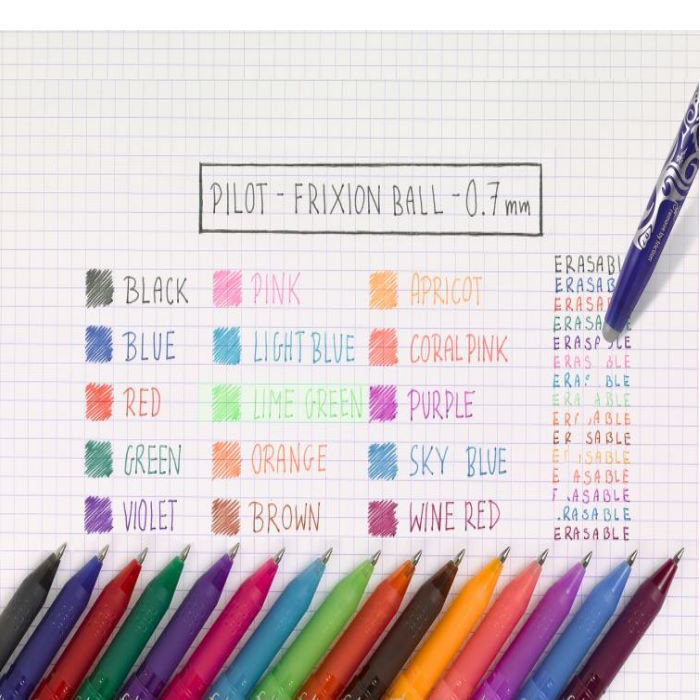 PILOT - FRIXION BALL - 0.7 mm
BLACK
BLUE
RED
GREEN
VIOLET
PINK
LIGHT BLUE
LIME GREEN
ORANGE
BROWN
APRICOT
CORAL PINK
PURPLE
SKY BLUE
WINE RED
ERASABL
ERASAB
ERASAB
ERASABL
ERASABLE
ERAS BLE
ERA BLE
ERA BLE
ERA ABLE
ER ABLE
ER SABLE
E SABLE
E ASABLE
ASABLE
RASABLE
ERASABLE
remove by friction